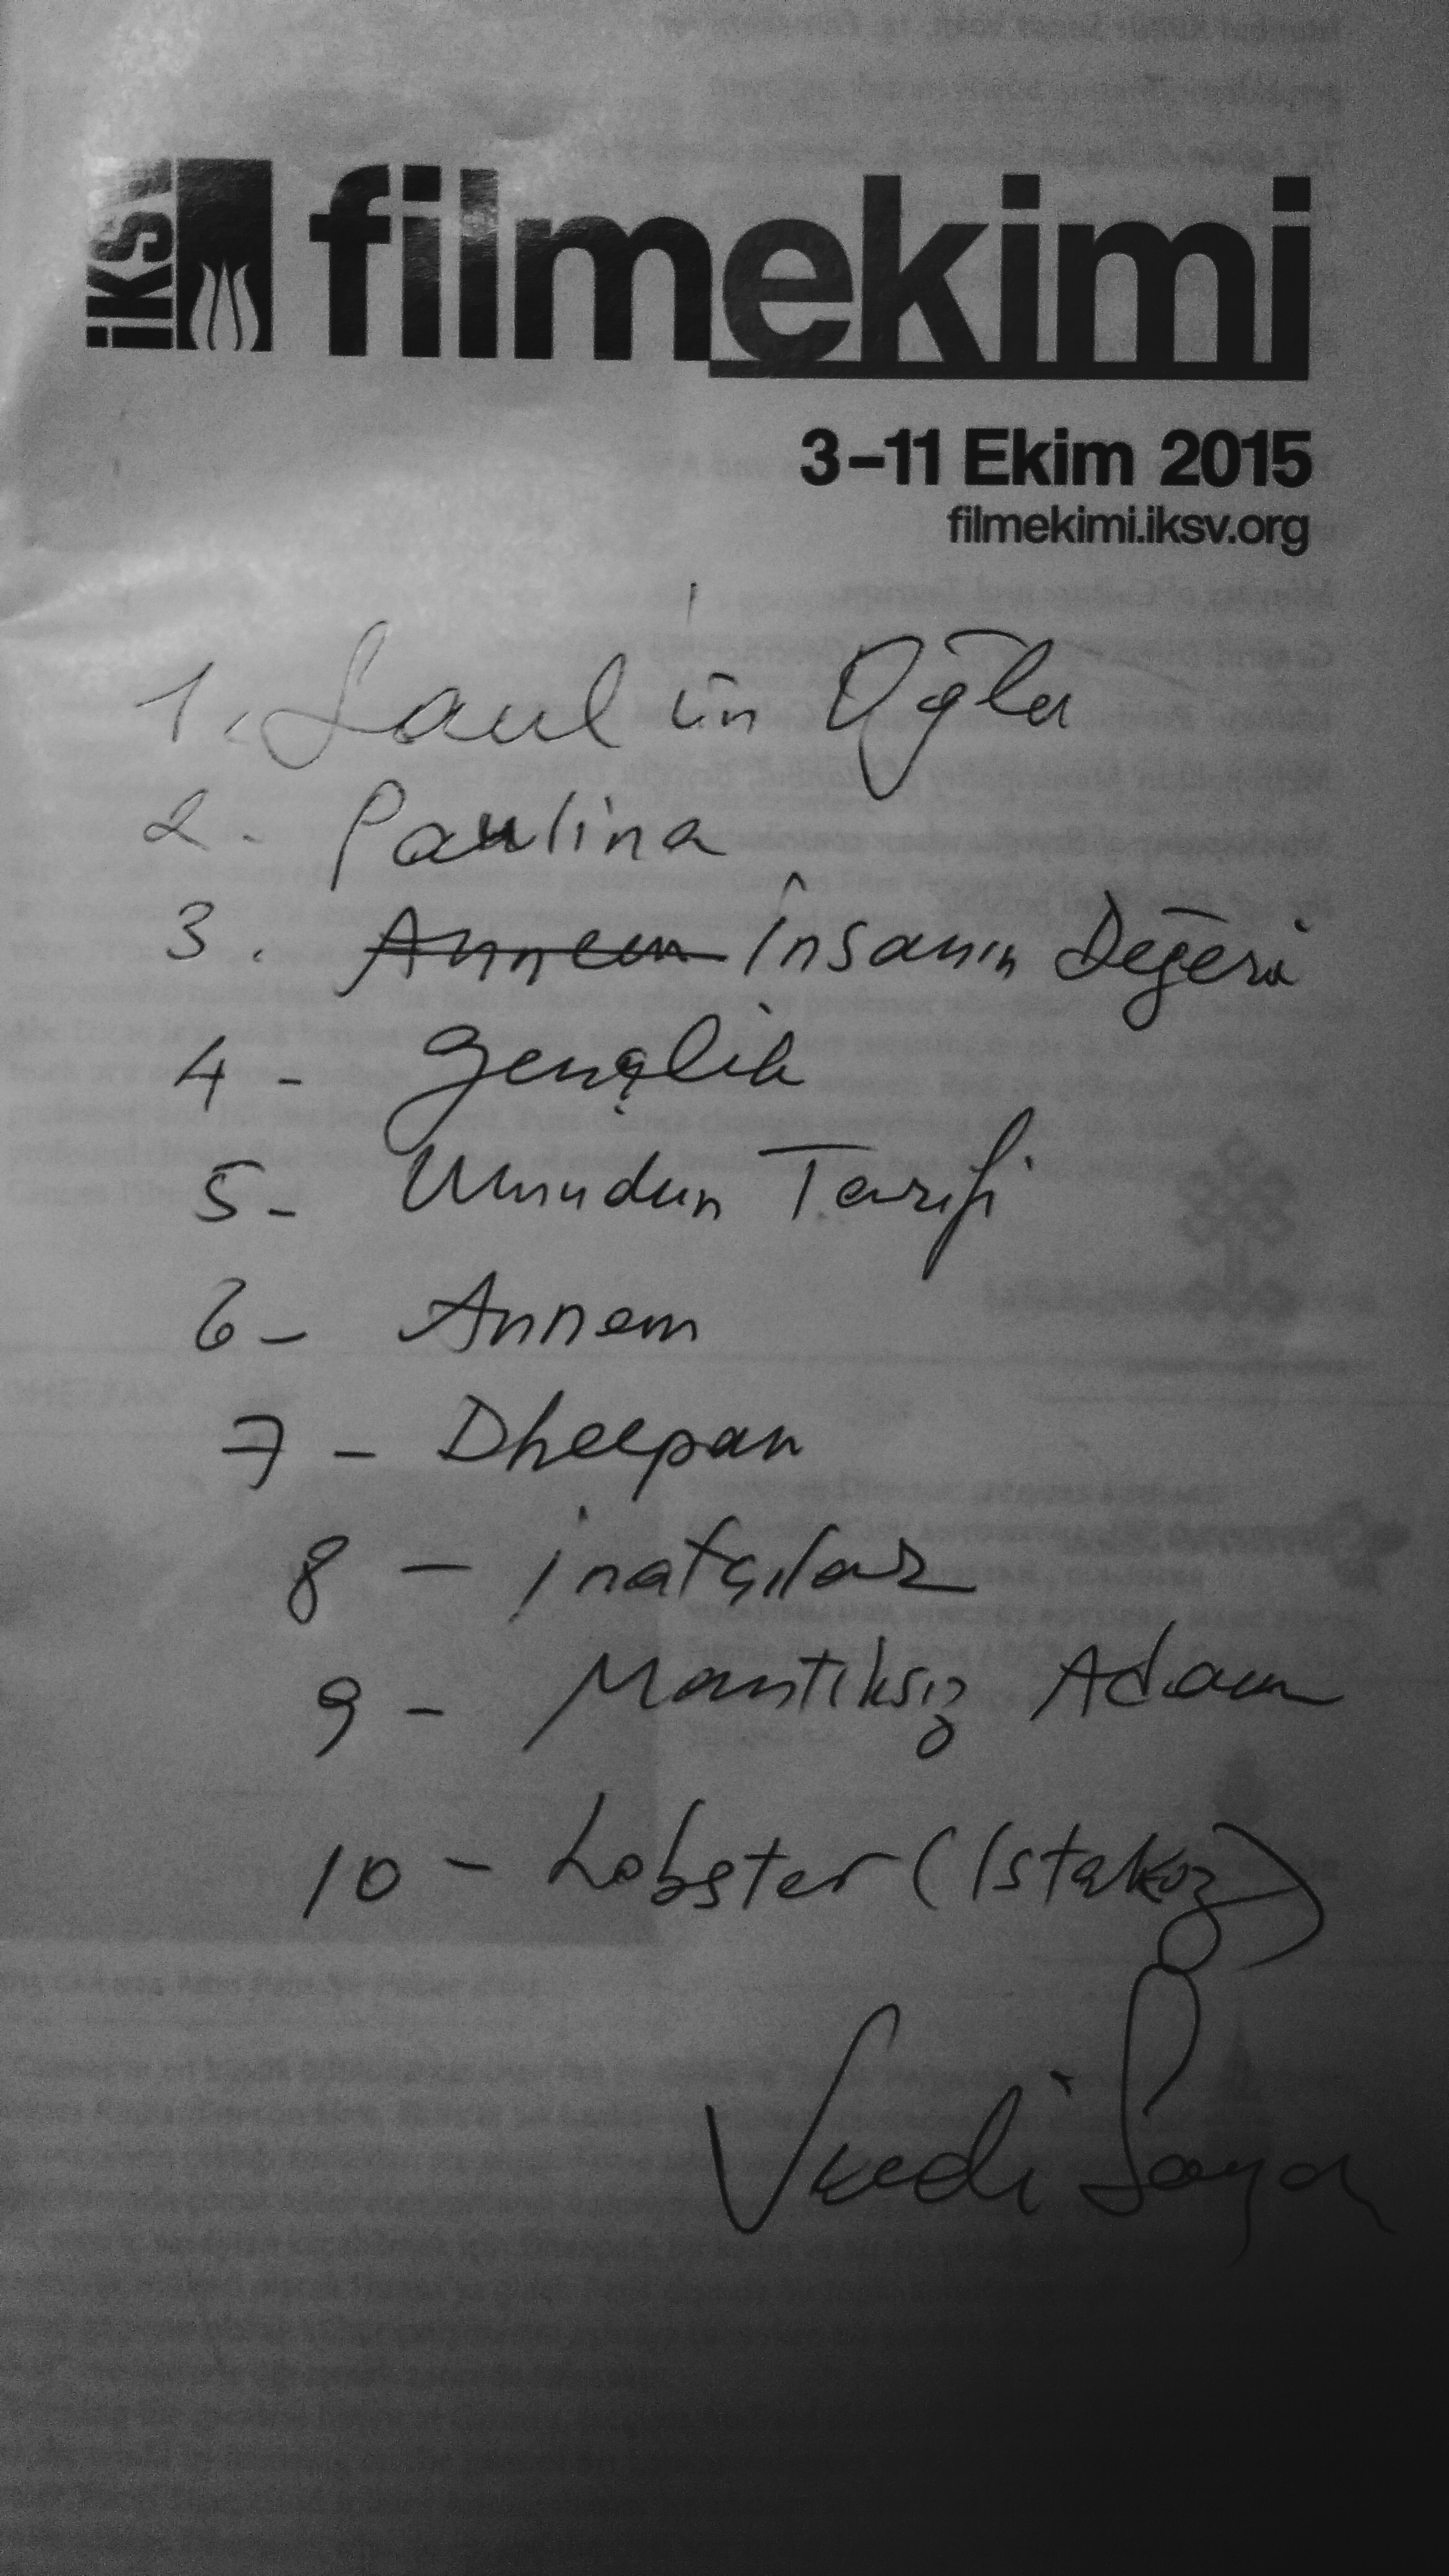 iKSV filmekimi
3–11 Ekim 2015
filmekimi.iksv.org
1. Saul'ün Oğlu
2. Paulina
3. Annem İnsanın Değeri
4 - Gençlik
5 - Umudun Tarifi
6 - Annem
7 - Dheepan
8 - İnatçılar
9 - Mantıksız Adam
10 - Lobster (Istakoz)
Vecdi Sayar